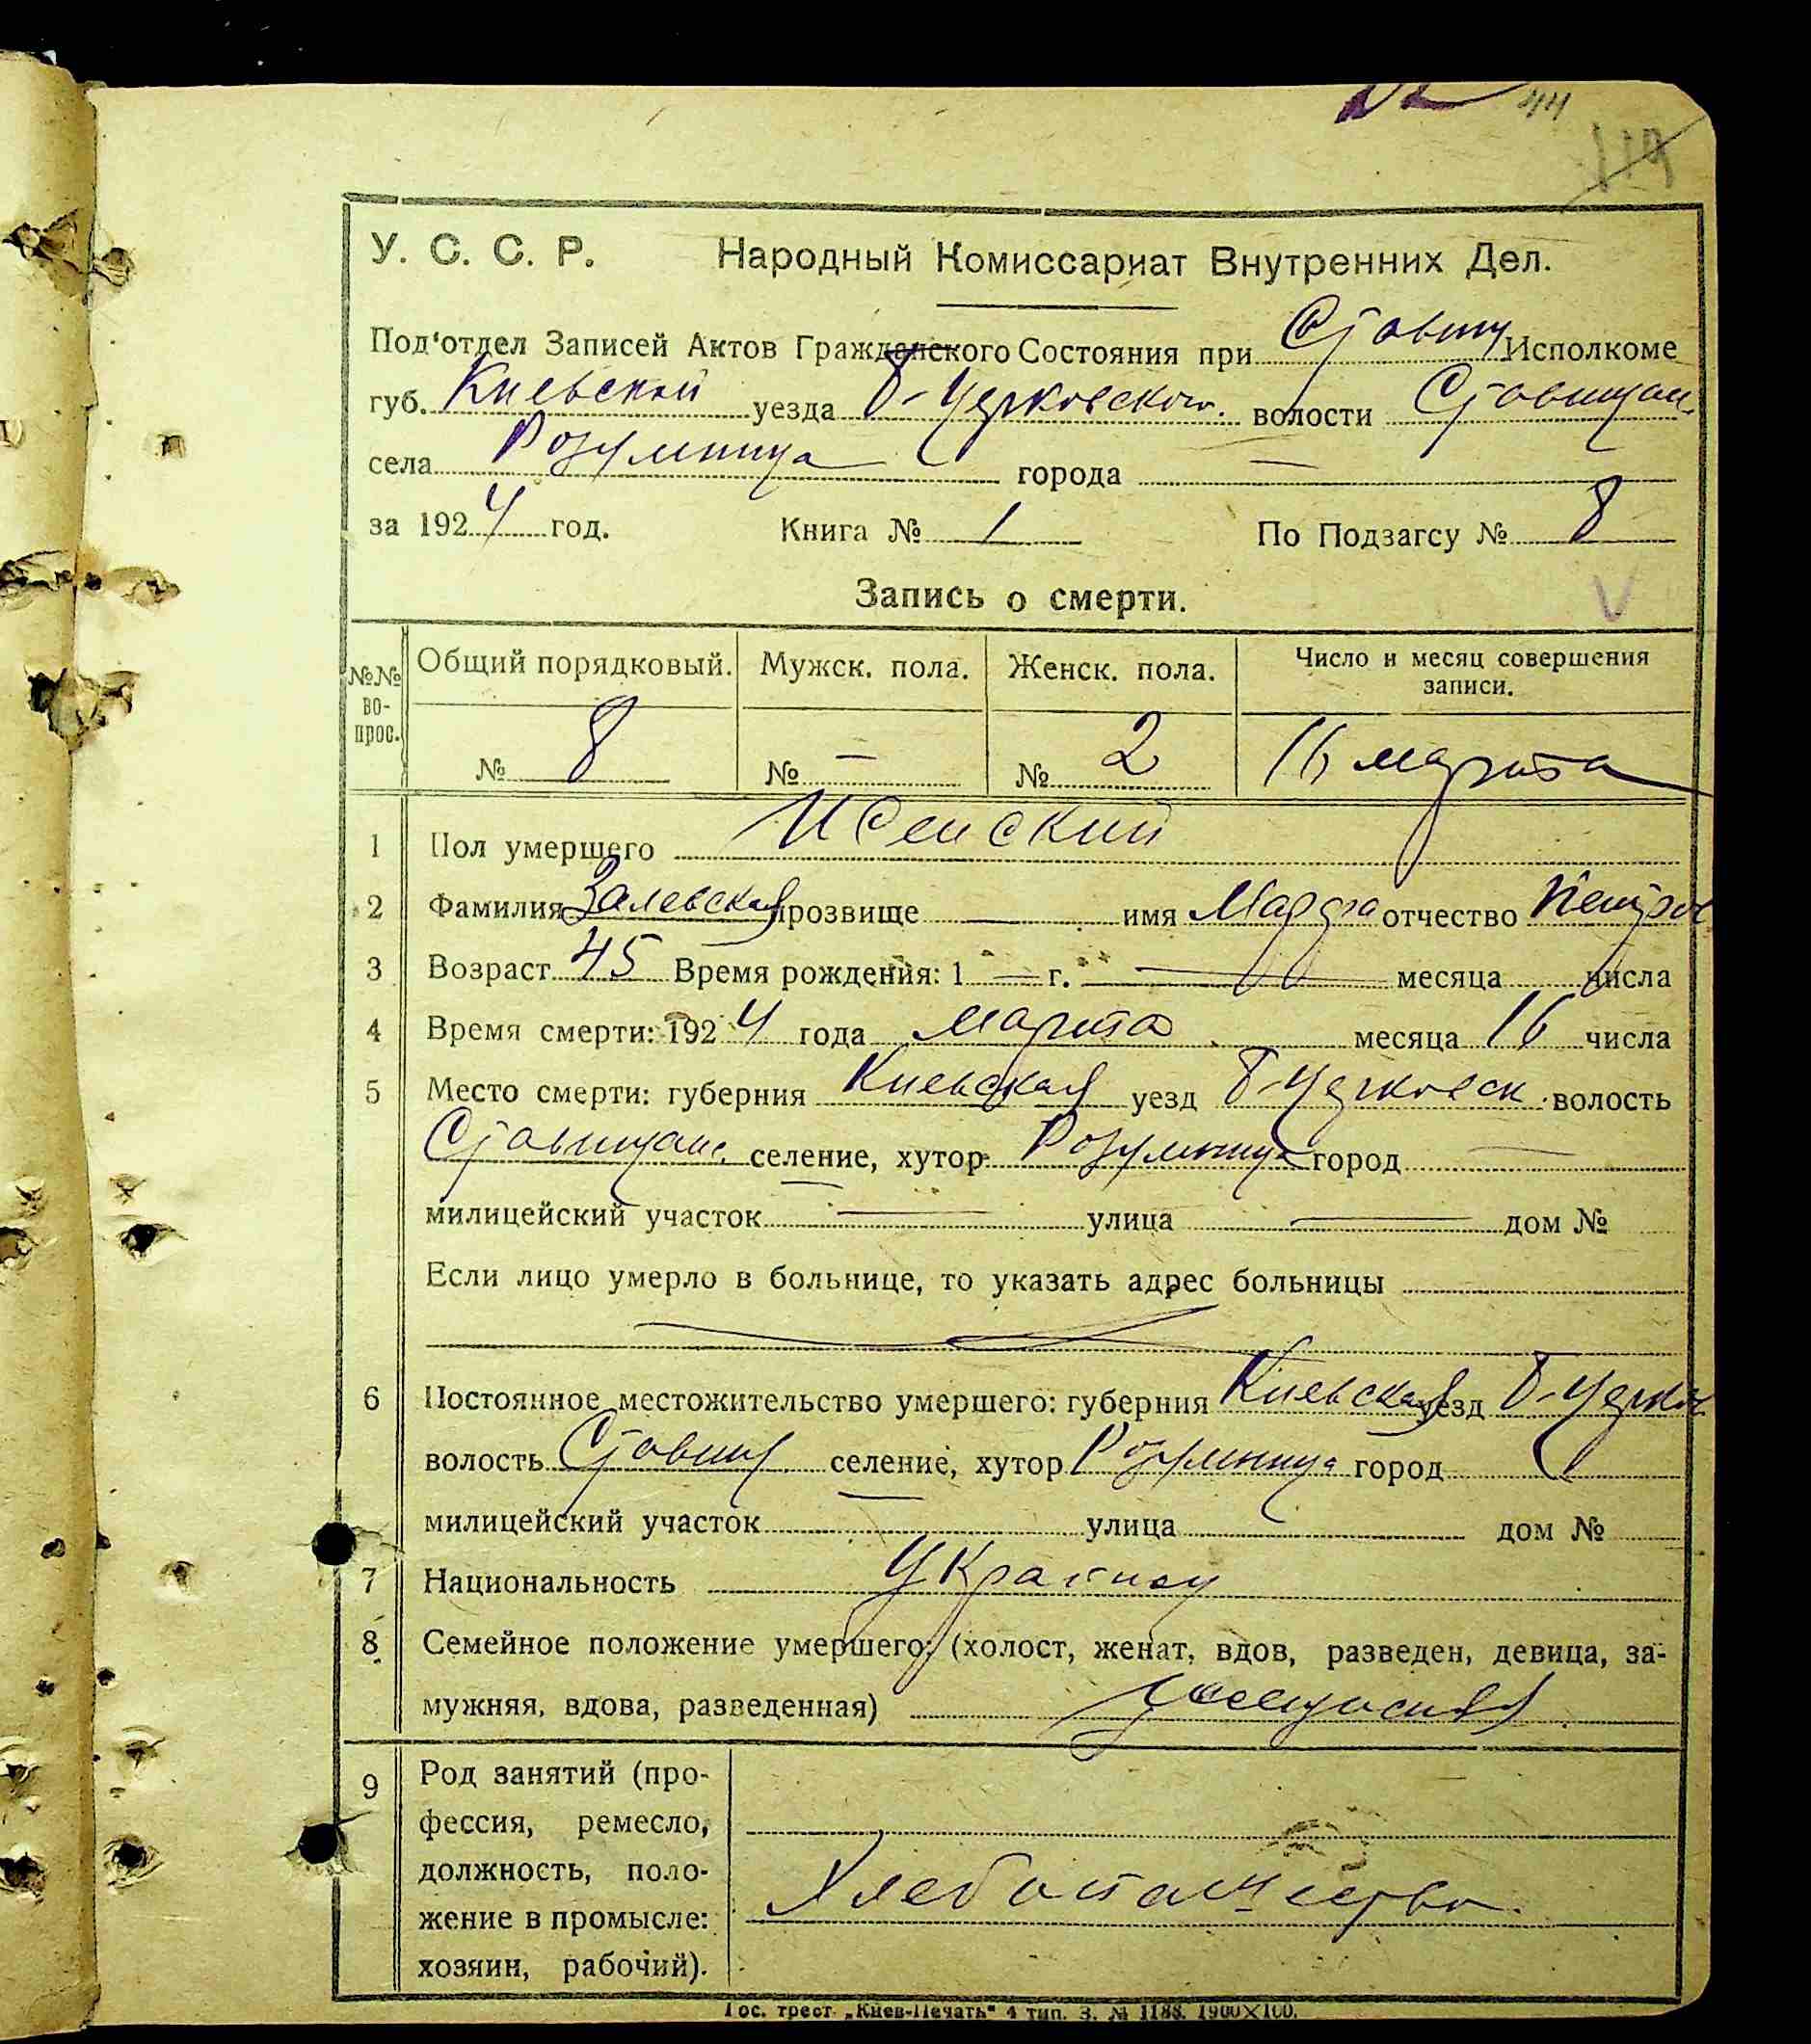 44
119
У. С. С. Р. Народный Комиссариат Внутренних Дел.
Под'отдел Записей Актов Гражданского Состояния при Ставищ Исполкоме
губ. Киевской уезда Б-Церковского. волости Ставищан.
села Розумница города —
за 1924 год. Книга № 1 По Подзагсу № 8
Запись о смерти.
№№ во- прос. Общий порядковый. Мужск. пола. Женск. пола. Число и месяц совершения записи.
№ 8 № — № 2 16 марта
1 Пол умершего Женский
2 Фамилия Залевская прозвище — имя Марфа отчество Петров
3 Возраст 45 Время рождения: 1 — г. — месяца числа
4 Время смерти: 1924 года марта месяца 16 числа
5 Место смерти: губерния Киевская уезд Б-Церковск. волость
Ставищан. селение, хутор Розумница город —
милицейский участок — улица — дом №
Если лицо умерло в больнице, то указать адрес больницы
6 Постоянное местожительство умершего: губерния Киевская уезд Б-Церков
волость Ставищ селение, хутор Розумница город
милицейский участок улица дом №
7 Национальность
8 Семейное положение умершего: (холост, женат, вдов, разведен, девица, за-
мужняя, вдова, разведенная)
9 Род занятий (про-
фессия, ремесло,
должность, поло-
жение в промысле: Хлебопашество.
хозяин, рабочий).
Гос. трест „Киев-Печать" 4 тип. З. № 1188. 1900×100.